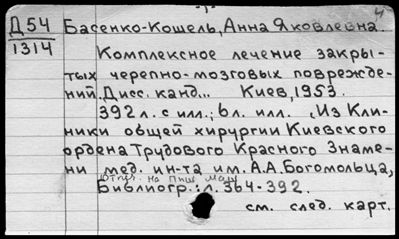 Д54 Басенко-Кошель, Анна Яковлевна.
1314
Комплексное лечение закры-
тых черепно-мозговых поврежде-
ний. Дисс. канд... Киев, 1953.
392 л. с илл.; бл. илл. „Из Кли-
ники общей хирургии Киевского
ордена Трудового Красного Знаме-
ни мед. ин-та им. А.А. Богомольца,
Отпеч. на пиш. маш.
Библиогр.: л. 364-392.
см. след. карт.